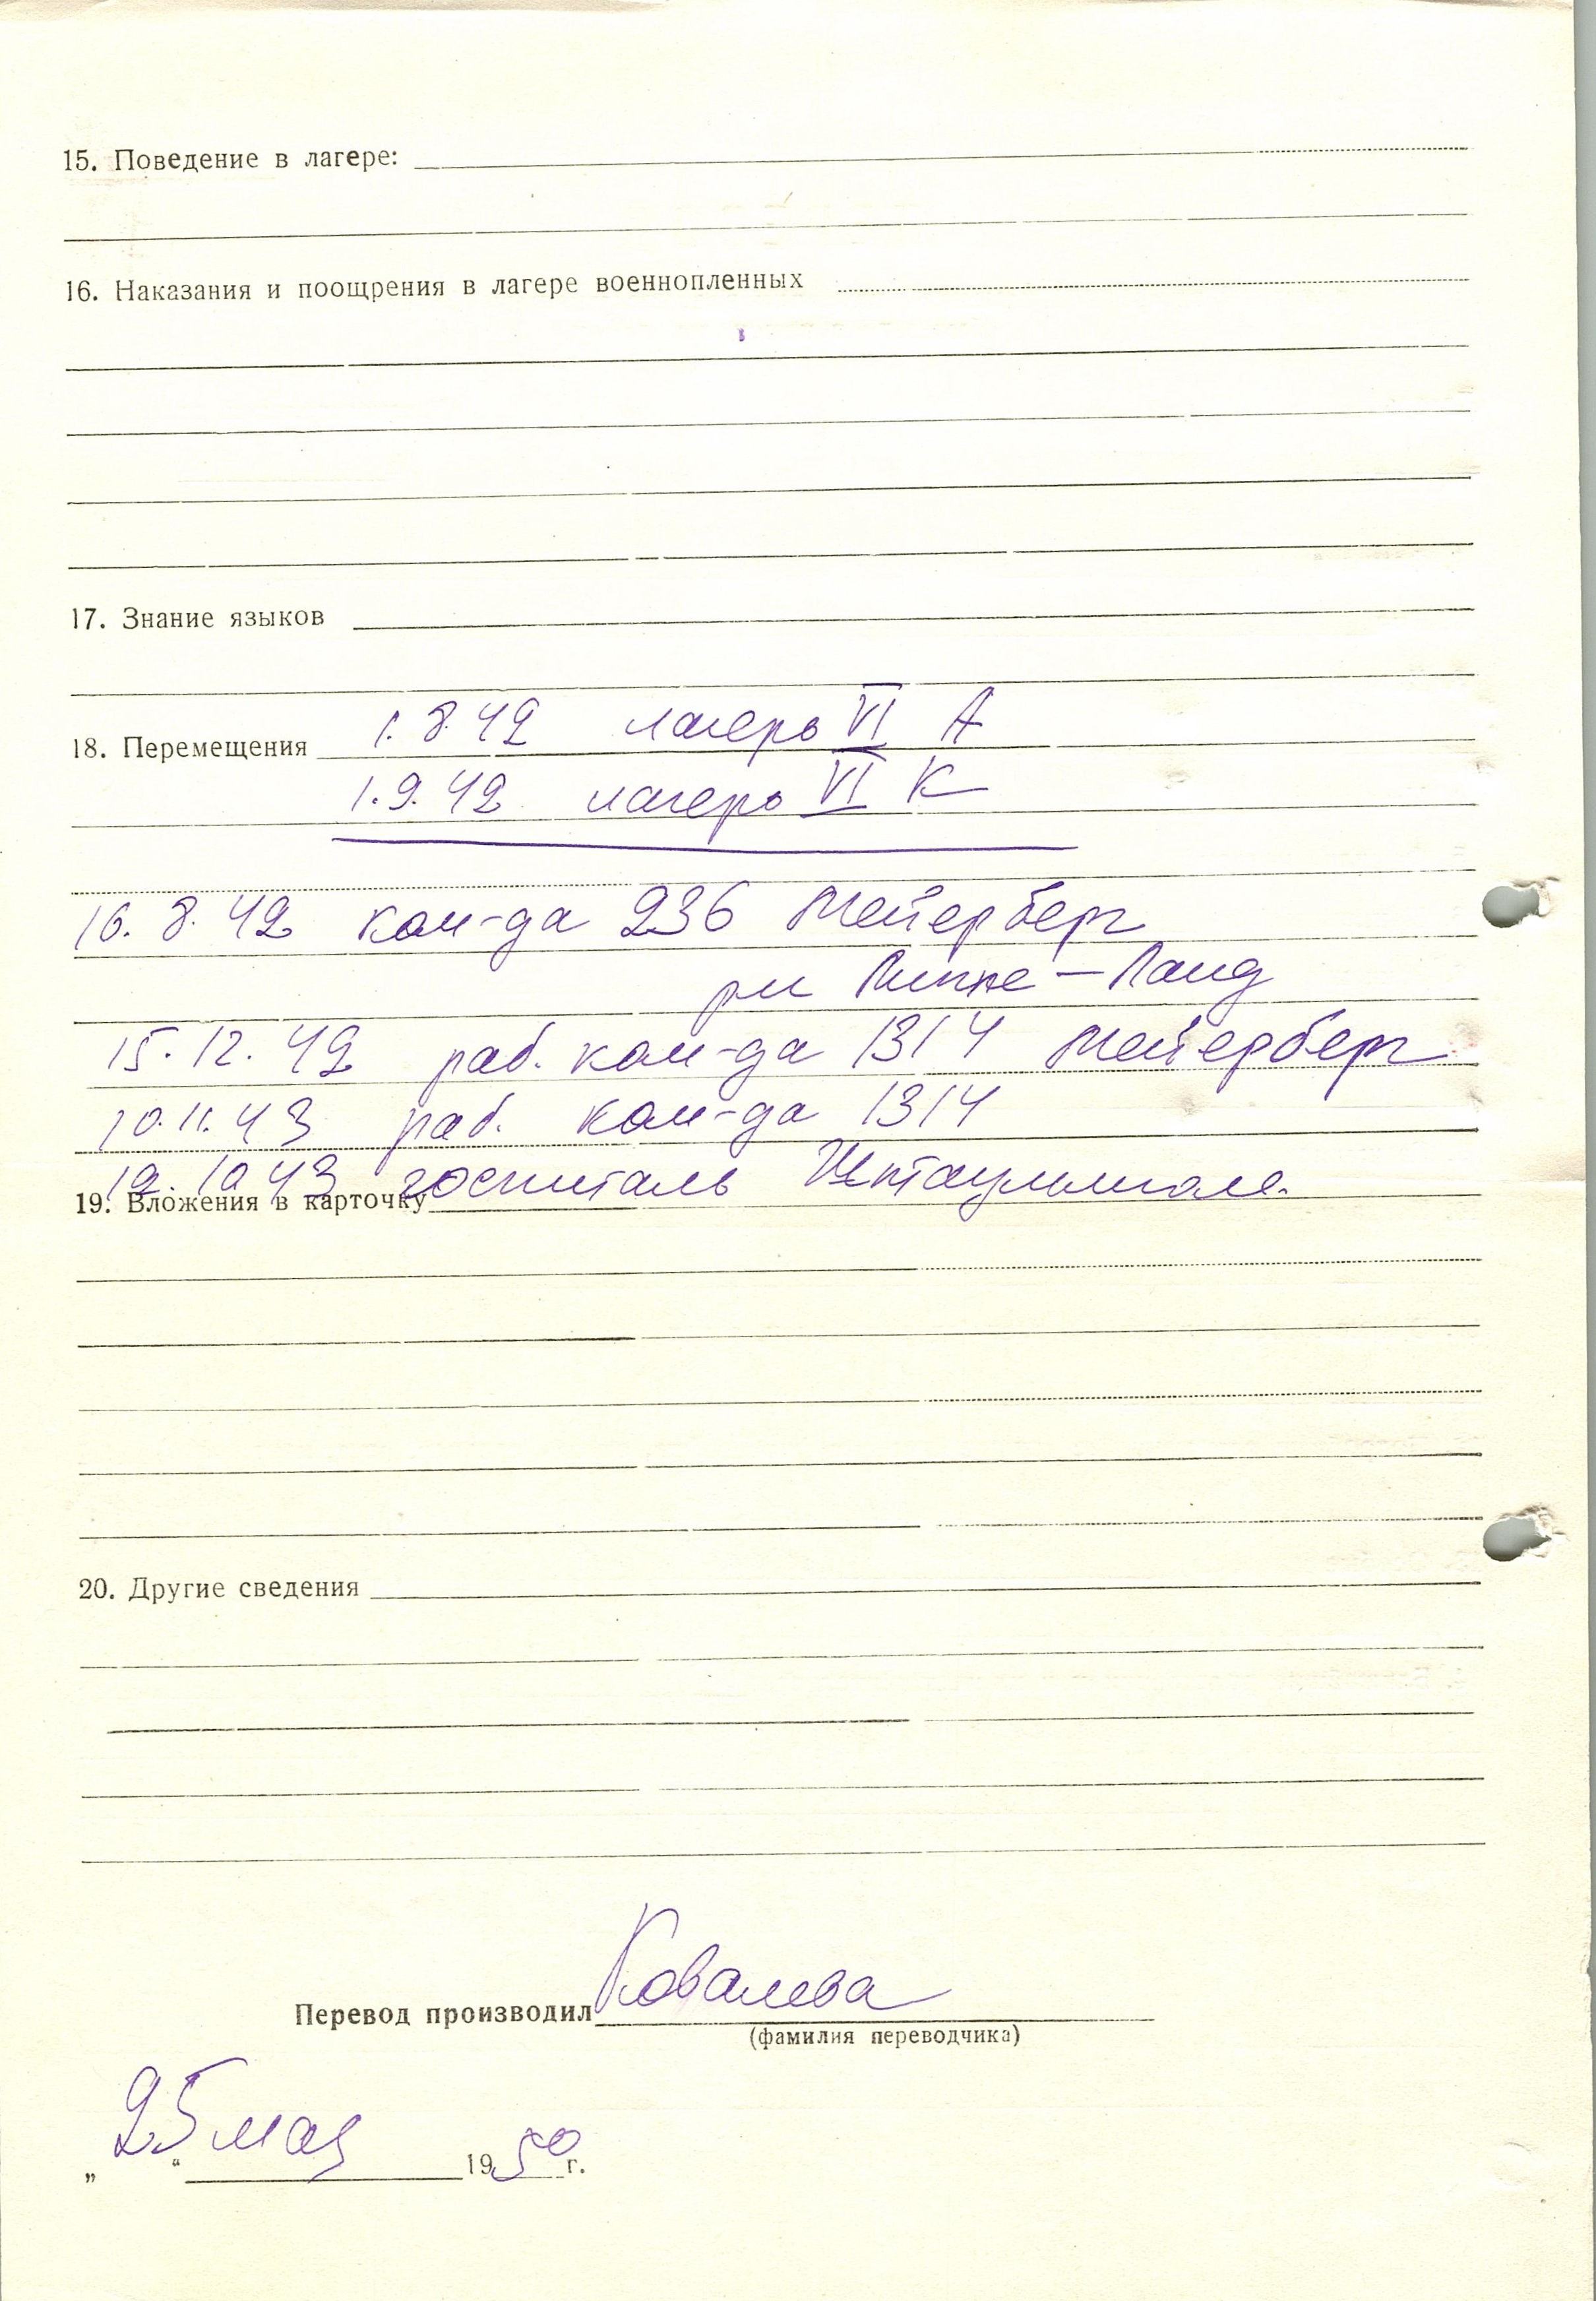 15. Поведение в лагере:
16. Наказания и поощрения в лагере военнопленных
17. Знание языков
18. Перемещения 1.8.42 лагерь VI А
1.9.42 лагерь VI К
16.8.42 ком-да 236 Мейерберг
Липпе-Ланд
15.12.42 раб. ком-да 1314 Мейерберг
10.11.43 раб. ком-да 1314
12.10 43 госпиталь
19. Вложения в карточку
20. Другие сведения
Перевод производил Ковалева
(фамилия переводчика)
„25“ мая 1950 г.